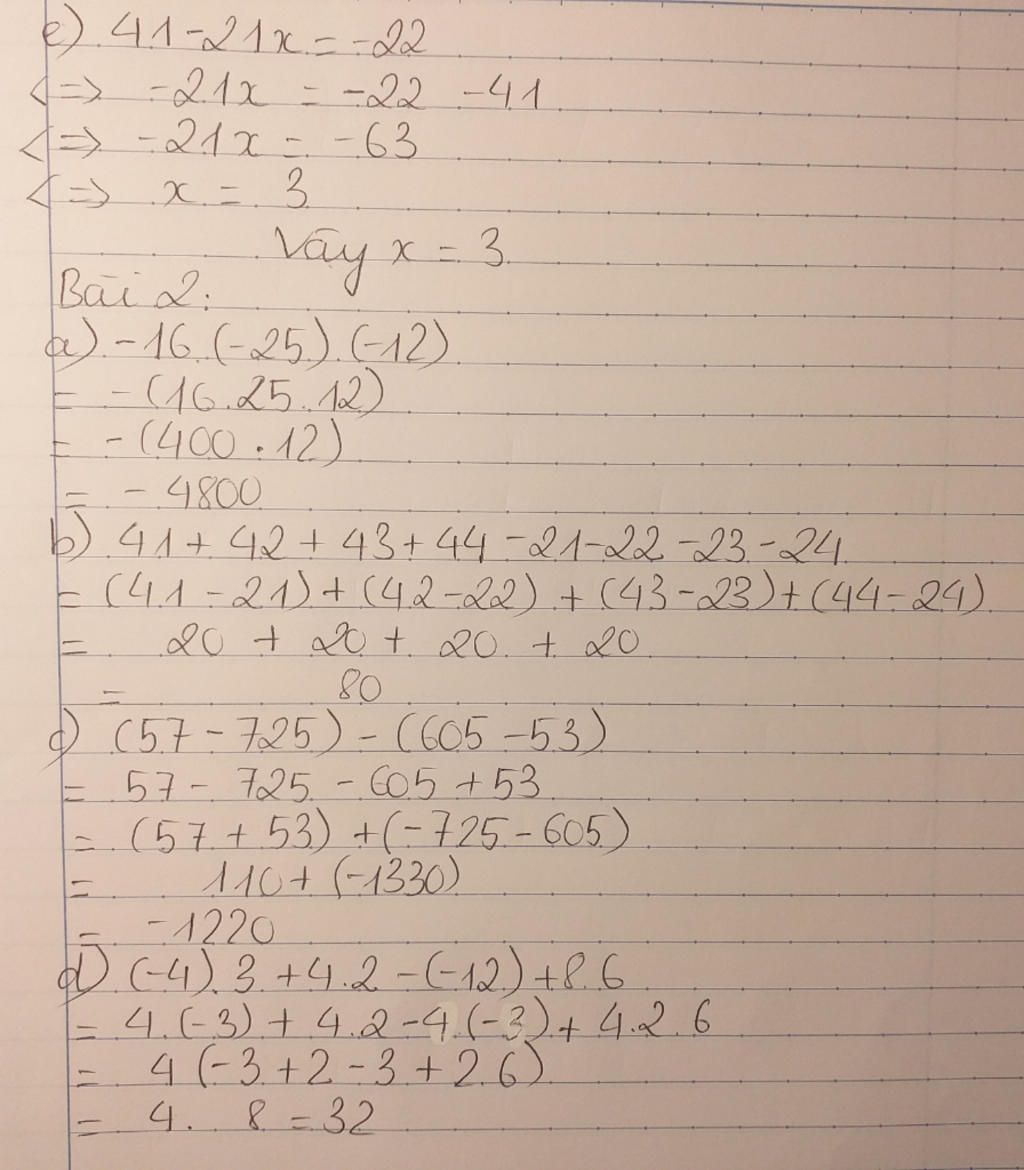 e) 41-21x = -22
<=> -21x = -22 -41
<=> -21x = -63
<=> x = 3
Vậy x = 3
Bài 2:
a) -16.(-25).(-12)
= -(16.25.12)
= -(400.12)
= -4800
b) 41 + 42 + 43 + 44 -21-22-23-24
= (41-21)+(42-22)+(43-23)+(44-24)
= 20 + 20 + 20 + 20
= 80
c) (57-725)-(605-53)
= 57-725-605+53
= (57+53)+(-725-605)
= 110+(-1330)
= -1220
d) (-4).3+4.2-(-12)+8.6
= 4.(-3)+4.2-4.(-3)+4.2.6
= 4(-3+2-3+2.6)
= 4. 8 = 32